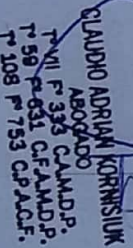 CLAUDIO ADRIAN KORNISIUK
ABOGADO
Tº VII Fº 333 C.A.M.D.P.
Tº 59 Fº 631 C.F.A.M.D.P.
Tº 108 Fº 753 C.P.A.C.F.